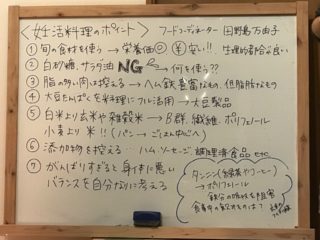 <妊活料理のポイント> フードコーディネーター 田野島万由子
① 旬の食材を使う→栄養価◎ ¥安い!! 生理的都合が良い
② 白砂糖、サラダ油 NG→何を使う??
③ 脂の多い肉は控える→ヘム鉄豊富なもの、低脂肪なもの
④ 大豆たんぱくを料理にフル活用→大豆製品
⑤ 白米より玄米や雑穀米→B群、繊維、ポリフェノール
小麦より米!! (パン→ごはん中心へ)
⑥ 添加物を控える… ハム、ソーセージ、調理済食品 etc
⑦ がんばりすぎると身体に悪い
バランスを自分なりに考える
タンニン(緑茶やコーヒー)
→ポリフェノール
鉄分の吸収を阻害
食事中の飲水